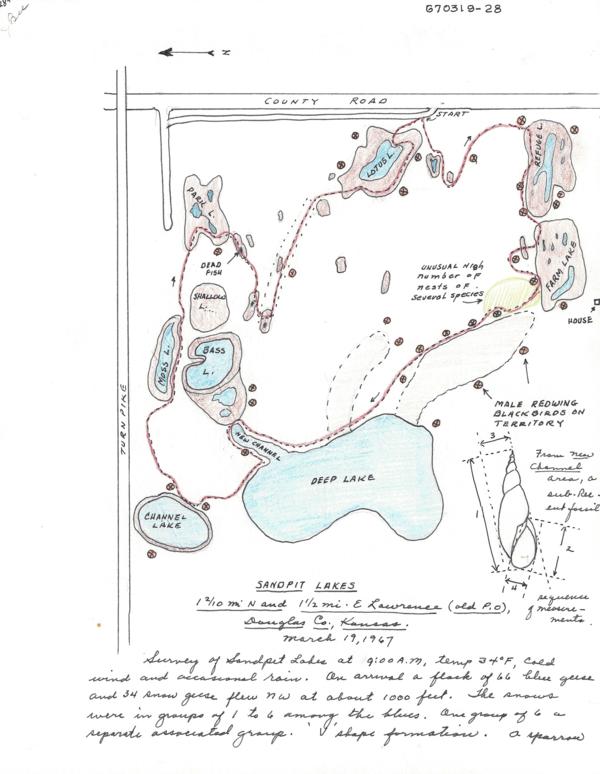 670319-28
N
COUNTY ROAD
START
LOTUS L.
REFUGE L.
PARK L.
DEAD
FISH
UNUSUAL HIGH
number of
nests of
several species
FARM LAKE
SHALLOW
L.
HOUSE
MOSS L.
BASS
L.
TURNPIKE
MALE REDWING
BLACKBIRDS ON
TERRITORY
NEW CHANNEL
DEEP LAKE
CHANNEL
LAKE
3
From new
Channel
area, a
sub-Rec-
ent fossil
1
2
4
sequence
of measure-
ments.
SANDPIT LAKES
1 2/10 mi N and 1 1/2 mi. E Lawrence (old P.O),
Douglas Co., Kansas.
march 19, 1967
Survey of Sandpit Lakes at 9:00 A.M, temp 34°F, Cold
wind and occasional rain. On arrival a flock of 66 blue geese
and 34 snow geese flew NW at about 1000 feet. The snows
were in groups of 1 to 6 among the blues. One group of 6 a
separate associated group. "V" shape formation. A sparrow